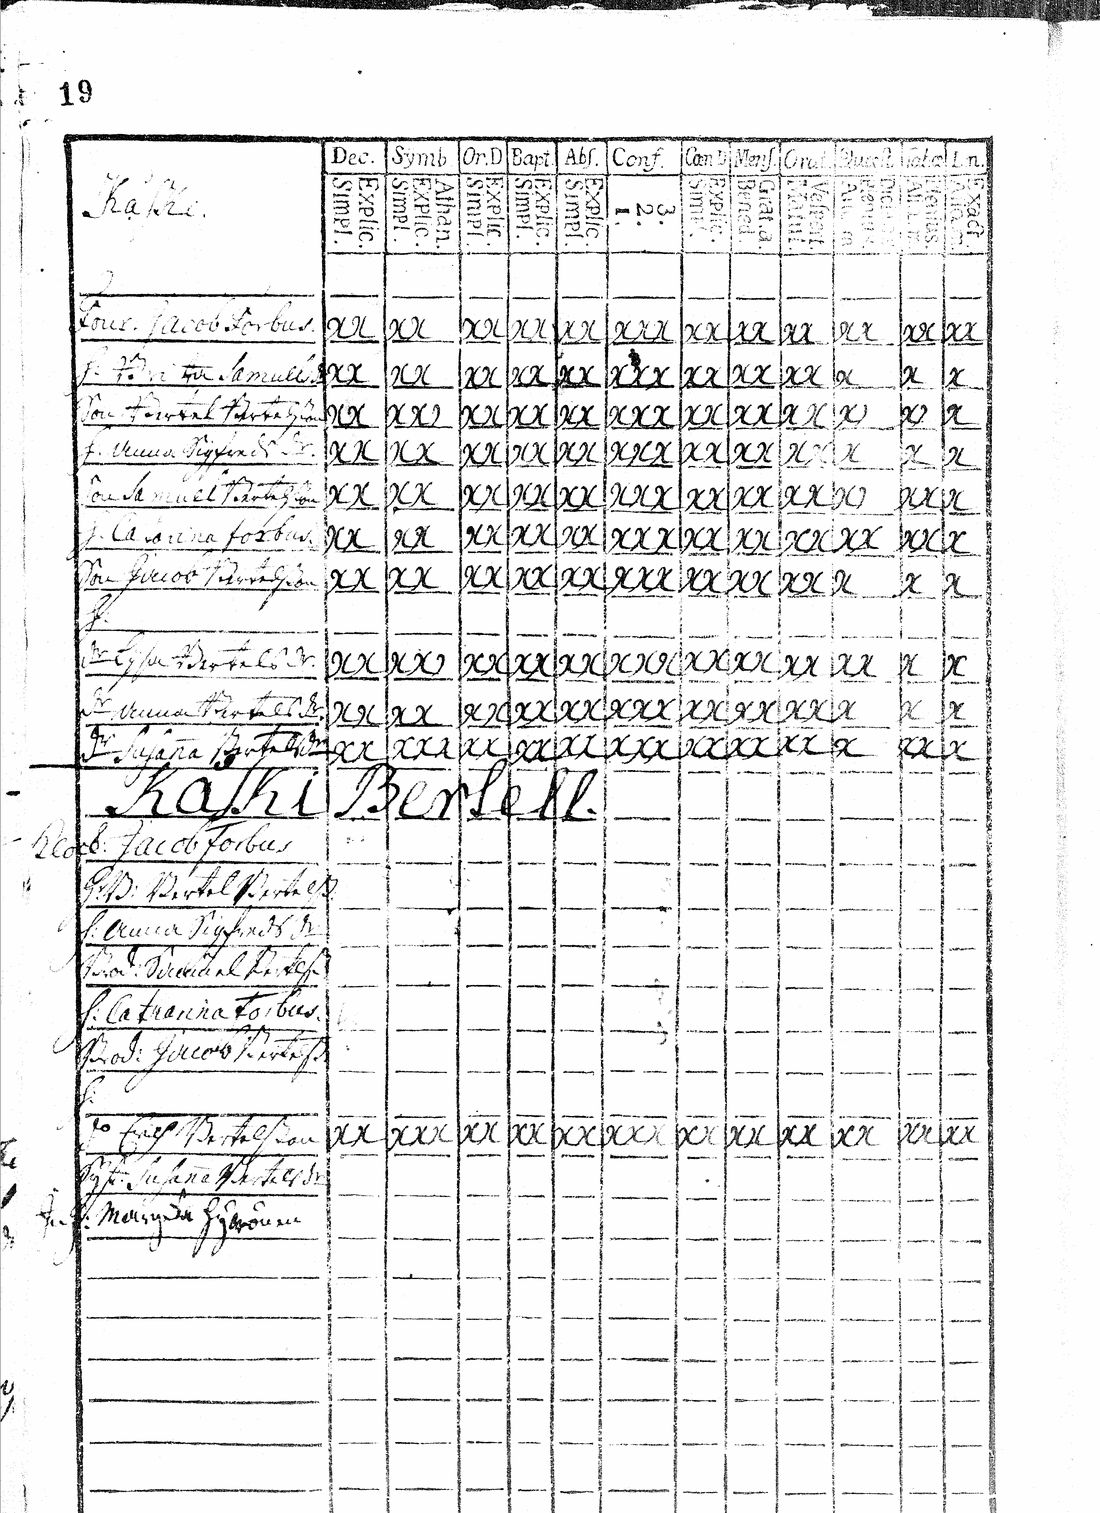 19
Dec. Symb. Or.D Bapt. Abs. Conf. Cœn.D Mens. Orat.
Kaski.
Explic. Simpl. Athan. Explic. Simpl. Explic. Simpl. Explic. Simpl. Explic. Simpl. 3. 2. 1. Explic. Simpl. Grat.a Bened. Vespert. Matut.
Jacob Forbus. xx xx xx xx xx xxx xx xx xx xx xx xx
Samuels xx xx xx xx xx xxx xx xx xx x x x
Son Bertel Bertelsson xx xx xx xx xx xxx xx xx xx x x x
h. Anna Sigfreds dr. xx xx xx xx xx xxx xx xx xx x x x
Son Samuel Bertelsson xx xx xx xx xx xxx xx xx xx x xx x
h. Catarina Forbus. xx xx xx xx xx xxx xx xx xx xx xx x
Son Jacob Bertelsson xx xx xx xx xx xxx xx xx xx x x x
h.
dr Lisa Bertels dr. xx xx xx xx xx xxx xx xx xx xx x x
dr Anna Bertels dr. xx xx xx xx xx xxx xx xx xx x x x
dr Susana Bertels dr xx xxx xx xx xx xxx xx xx xx x xx x
Kaski Bertell.
Jacob Forbus
Bertel Bertelss.
h: Anna Sigfreds dr
Brod: Samuel Bertelss
h: Catharina Forbus.
Brod: Jacob Bertelss
h:
Erich Bertelsson xx xxx xx xx xx xxx xx xx xx xx xx xx
Syst: Susana Bertels dr
h: Margeta Hyvönen